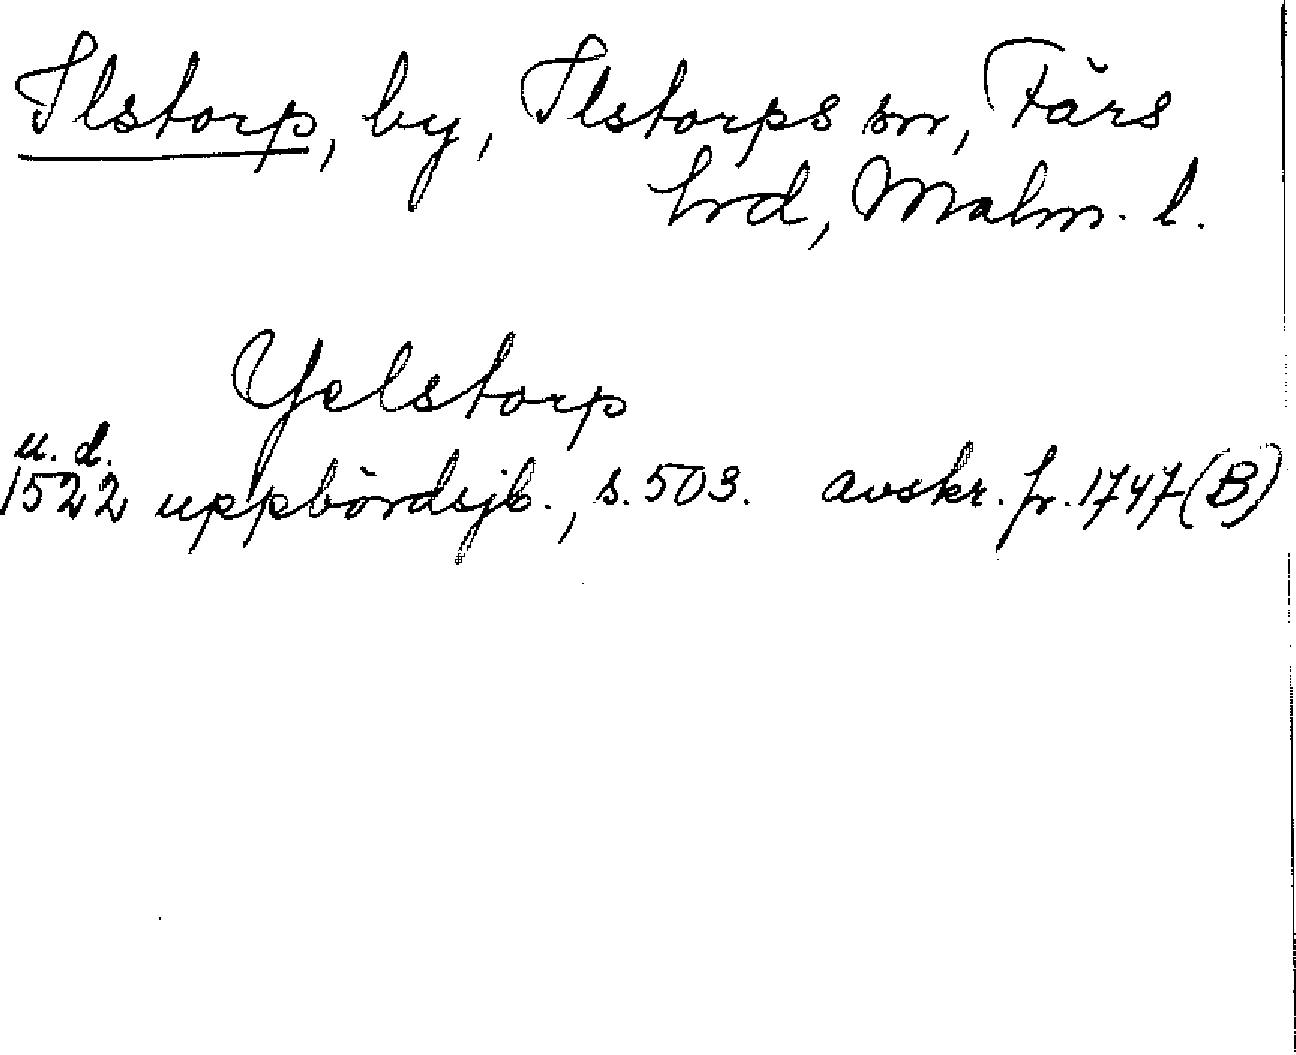 Ilstorp, by, Ilstorps sn, Färs
hrd, Malm. l.
Yelstorp
u. d.
1522 uppbördsjb., s. 503. avskr. fr. 1747 (B)